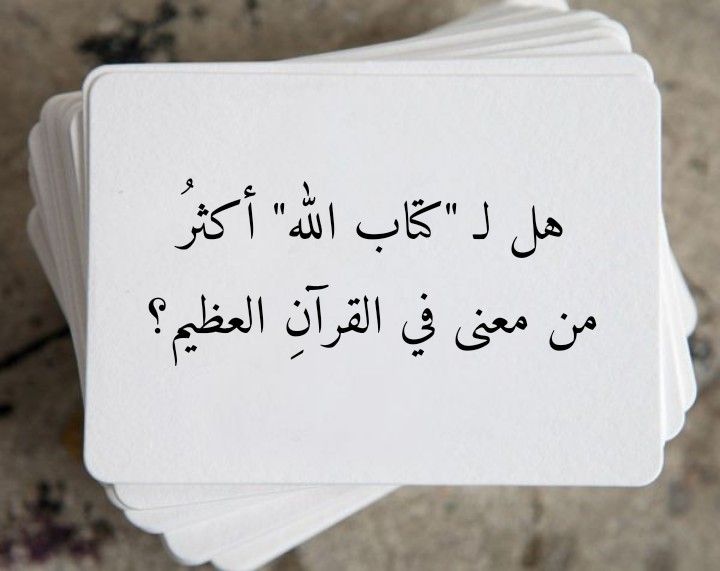 هل لـ "كتاب الله" أكثرُ
من معنى في القرآنِ العظيم؟